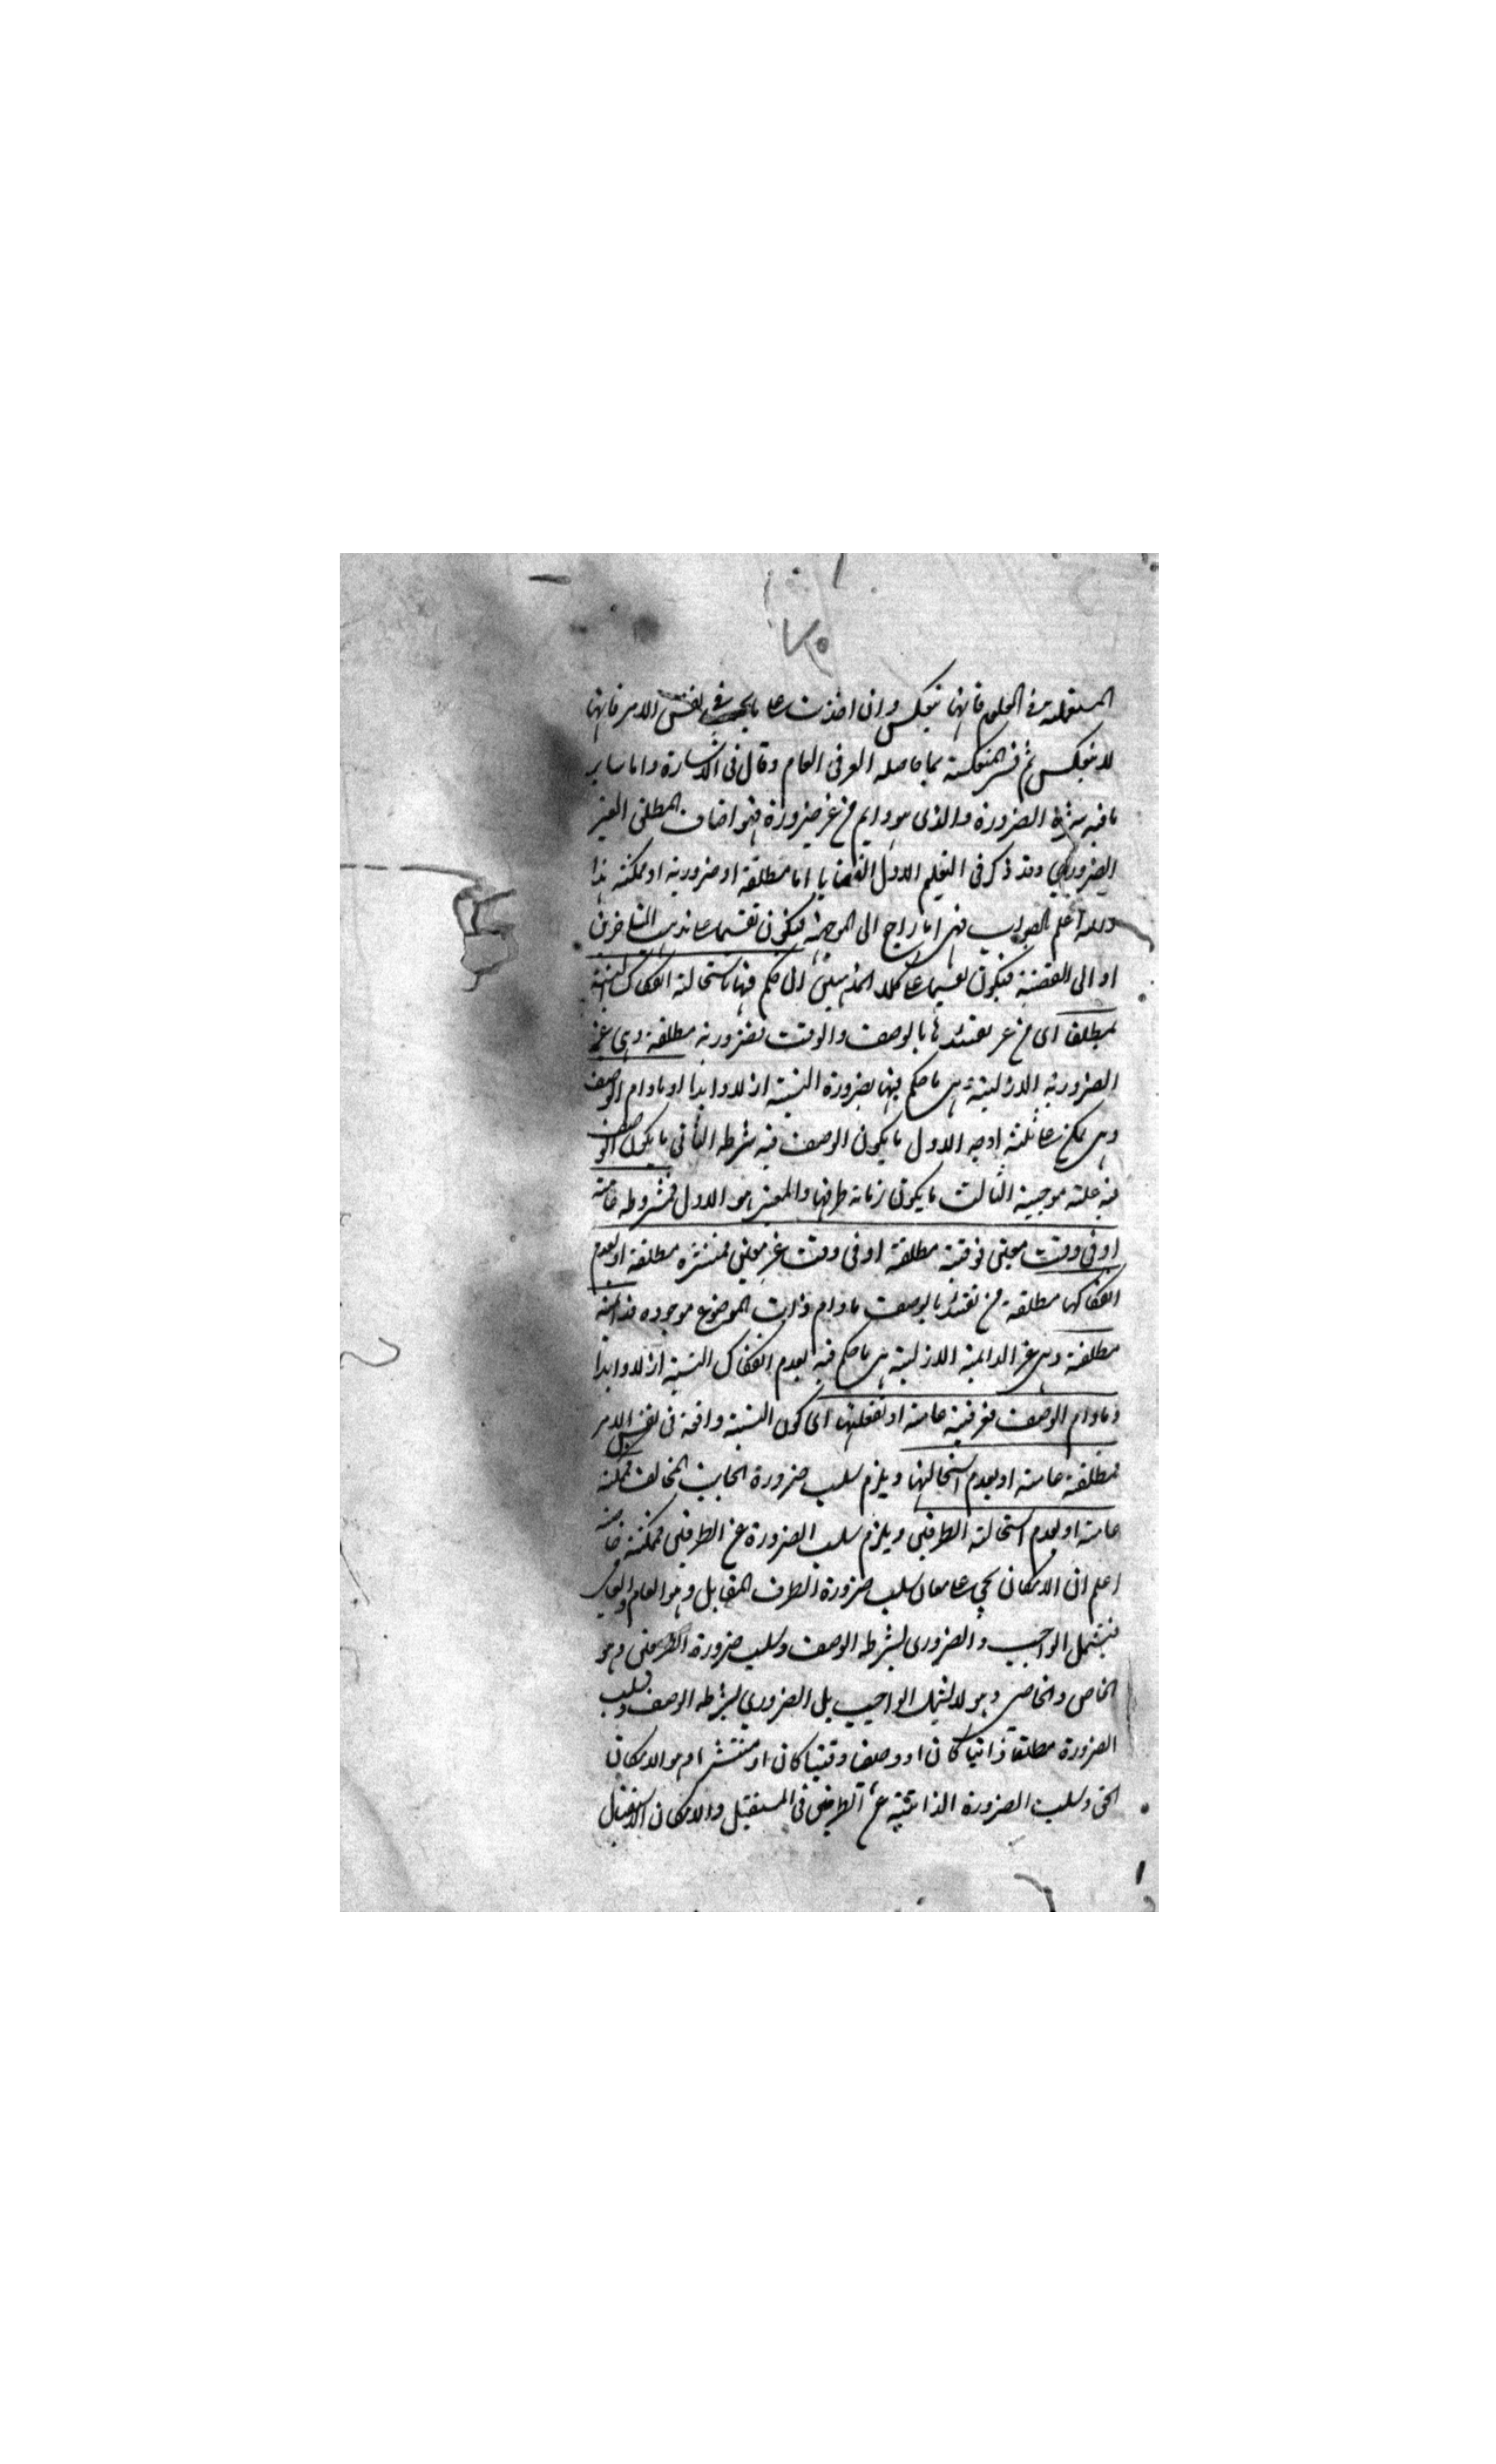 ٧٥
المستعملة في العلوم فانها تنعكس وان اخذت على ما يجب في نفس الامر فانها
لا تنعكس ثم فسر المنعكسة بما حاصله العرفي العام وقال في الاشارة واما سائر
ما فيه شرط الضرورة والذي هو دايم من غير ضرورة فهو اصناف المطلق الغير
الضروري وقد ذكر في التعليم الاول القضايا اما مطلقة او ضرورية او ممكنة هذا
والله اعلم بالصواب فهي اما راجع الى الموجهة فيكون تقسيما على مذهب المتاخرين
او الى القضية فيكون تقسيما على كلا المذهبين ان حكم فيها باستحالة انفكاك النسبة
مطلقا اي من غير تقييدها بالوصف والوقت فضرورية مطلقة وهي غير
الضرورية الازلية وهي ما حكم فيها بضرورة النسبة ازلا وابدا او مادام الوصف
وهي على ثلثة اوجه الاول ما يكون الوصف فيه شرطه الثاني ما يكون الوصف
فيه علة موجبة الثالث ما يكون زمانه ظرفها والمعتبر هو الاول فمشروطه عامة
او في وقت معين فوقتية مطلقة او في وقت غير معين فمنتشره مطلقة او بعدم
انفكاكها مطلقة من تقييد بالوصف مادام ذات الموضوع موجوده فدائمة
مطلقة وهي غير الدائمة الازلية هي ما حكم فيه بعدم انفكاك النسبة ازلا وابدا
او مادام الوصف فعرفية عامة او بفعليتها اي كون النسبة واقعة في نفس الامر
فمطلقة عامة او بعدم استحالتها ويلزم سلب ضرورة الجانب المخالف فممكنة
عامة او بعدم استحالة الطرفين ويلزم سلب الضرورة عن الطرفين فممكنة خاصة
اعلم ان الامكان يجي على معان سلب ضرورة الطرف المقابل وهو العام والعامي
فيشمل الواجب والضروري بشرط الوصف وسلب ضرورة الطرفين وهو
الخاص والخاصي وهو لا يشمل الواجب بل الضروري بشرط الوصف وسلب
الضرورة مطلقا ذاتيا كان او وصفيا وقتيا كان او منتشرا وهو الامكان
الاخص وسلب الضرورة الذاتية عن الطرفين في المستقبل والامكان الاستقبالي